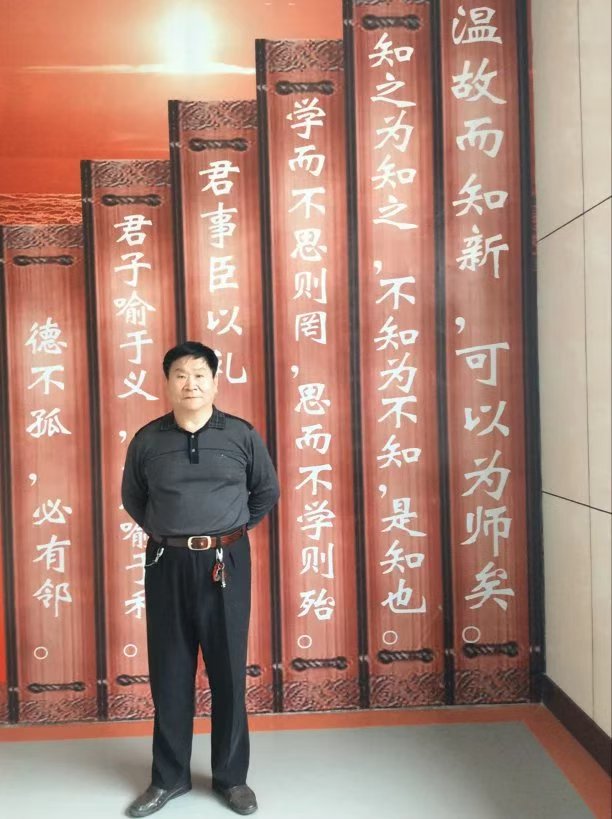 温故而知新，可以为师矣。
知之为知之，不知为不知，是知也。
学而不思则罔，思而不学则殆。
君事臣以礼
君子喻于义，喻于利。
德不孤，必有邻。